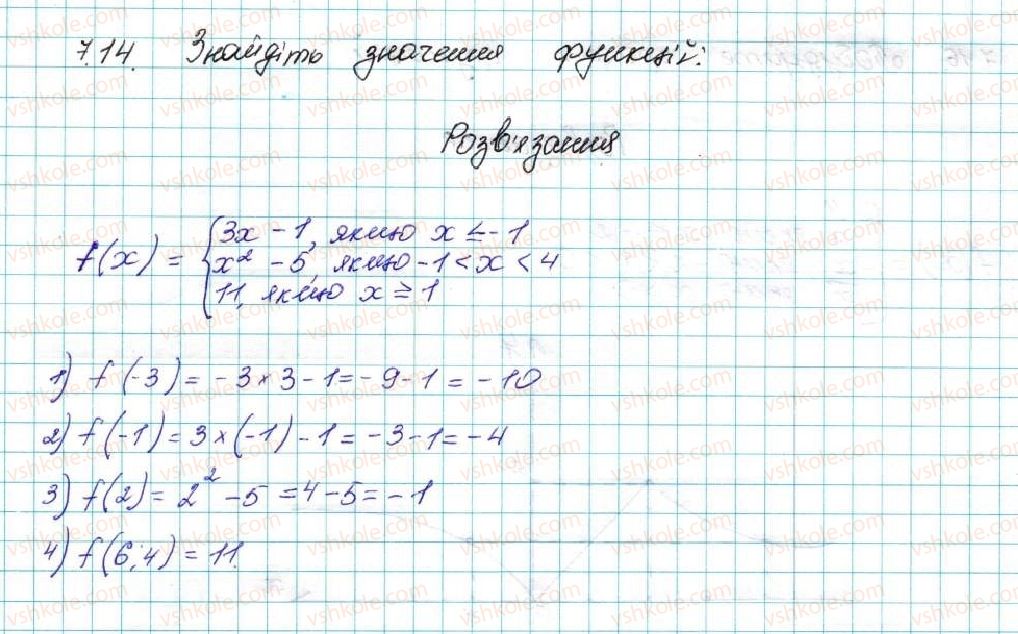 7.14. Знайдіть значення функцій:
Розв'язання
f(x) = { 3x - 1, якщо x ≤ -1
x² - 5, якщо -1 < x < 4
11, якщо x ≥ 1
1) f(-3) = -3 × 3 - 1 = -9 - 1 = -10
2) f(-1) = 3 × (-1) - 1 = -3 - 1 = -4
3) f(2) = 2² - 5 = 4 - 5 = -1
4) f(6;4) = 11.